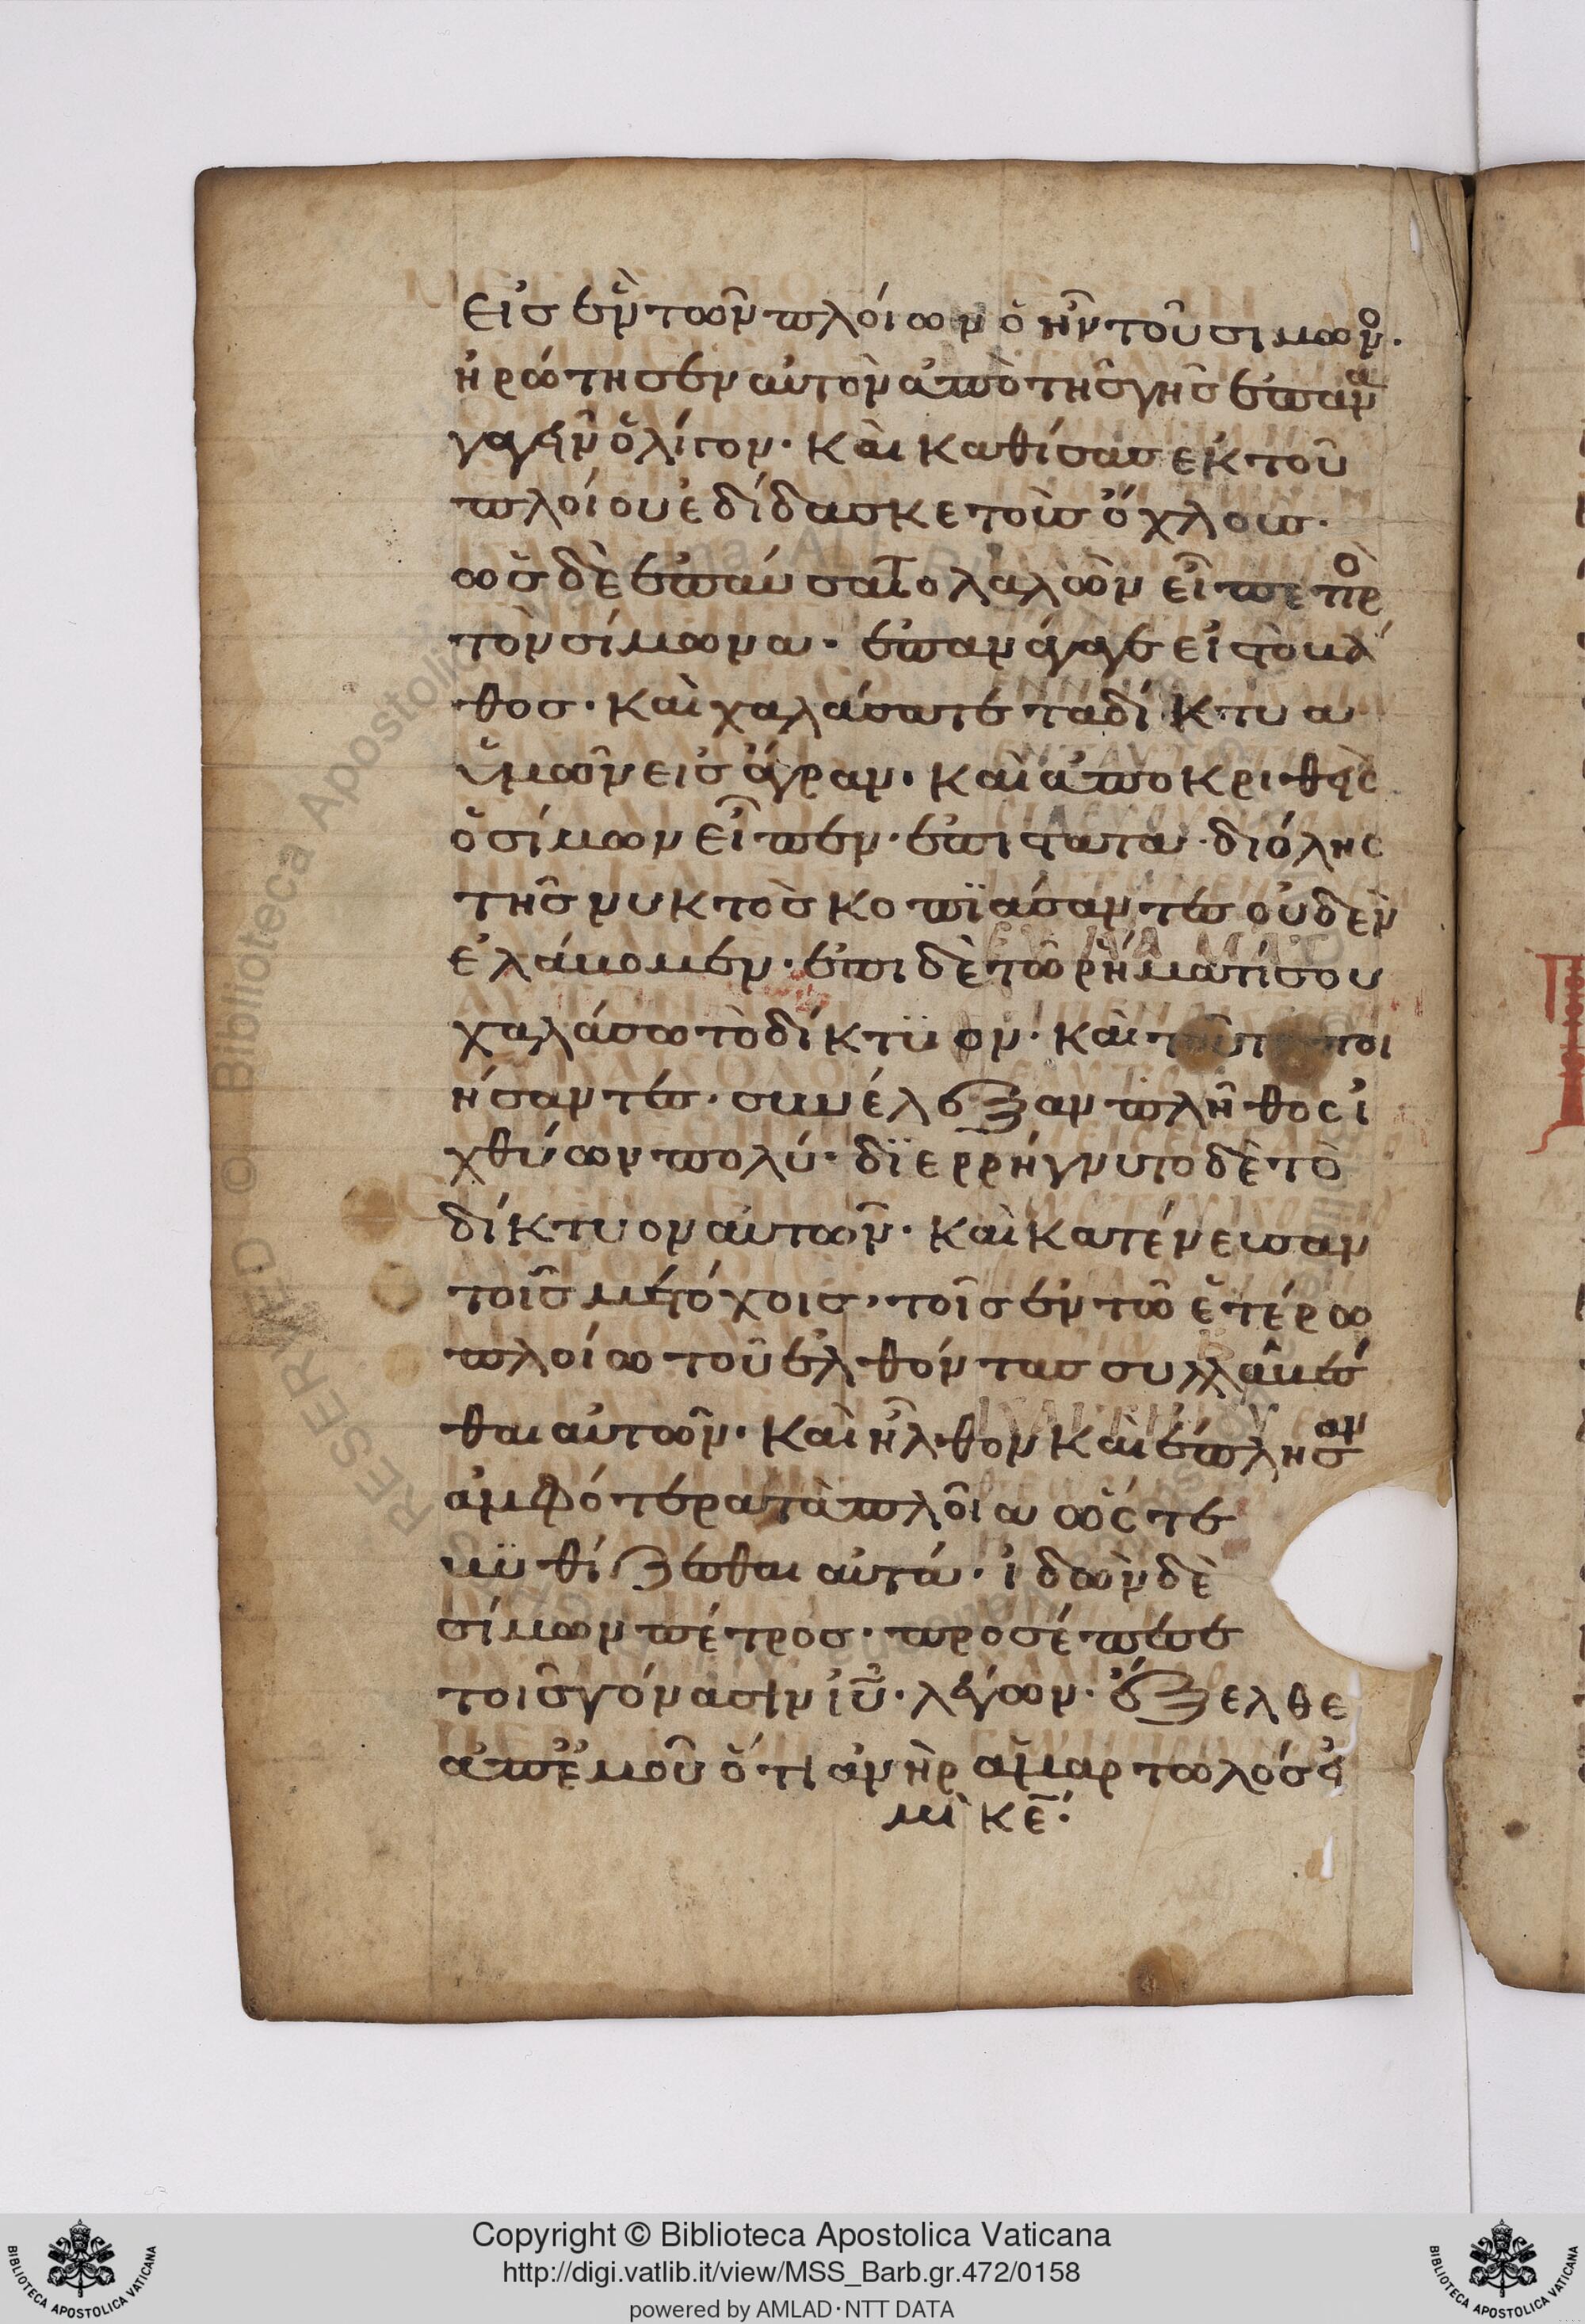 εἰσ ἓν τῶν πλοίων ὃ ἦν τοῦ σιμων^ο.
ἠρώτησεν αὐτὸν ἀπὸ τῆσ γῆσ ἐπαν^α
γαγεῖν ὁλίγον· καὶ καθίσασ εκ τοῦ
πλοίου ἐδίδασκε τοὺσ ὄχλουσ·
ὡσ δὲ ἐπαύσατο λαλῶν εἶπε πρ^ὸ
τὸν σίμωνα· ἐπανάγαγε εἰσ τὸ βά
θοσ· καὶ χαλάσατε τα δίκτυα
ὑμῶν εισ ἄγραν· καὶ ἀποκριθεὶσ
ὁ σίμων εἶπεν· ἐπιστατα· δι όλησ
τῆσ νυκτὸσ κοπϊάσαντεσ οὐδὲν
ἐλάβομεν· ἐπι δὲ τῶ ρήματί σου
χαλάσω τὸ δίκτϋον· καὶ τοῦτο ποι
ήσαντεσ· συνέλεξαν πλῆθοσ ἰ
χθύων πολύ· δϊερρήγνυτο δὲ τὸ
δίκτυον αὐτῶν· καὶ κατένευσαν
τοῖσ μετόχοισ, τοῖσ ἐν τῶ ἑτέρω
πλοίω τοῦ ἐλθόντασ συλλαβέσ
θαι αὐτῶν· καὶ ἦλθον καὶ ἔπλησ^αν
ἀμφότερα τὰ πλοῖα ὥστε
βϋθίζεσθαι αὐτά· ἰδὼν δὲ
σίμων πέτροσ· προσέπεσε
τοῖσ γόνασιν ἰῦ· λέγων· ἔξελθε
ἀπ ἐμοῦ ὅτι ἀνὴρ ἁμαρτωλόσ εἰ
μὶ κε̄:
Copyright © Biblioteca Apostolica Vaticana
http://digi.vatlib.it/view/MSS_Barb.gr.472/0158
powered by AMLAD·NTT DATA
BIBLIOTECA APOSTOLICA VATICANA
BIBLIOTECA APOSTOLICA VATICANA